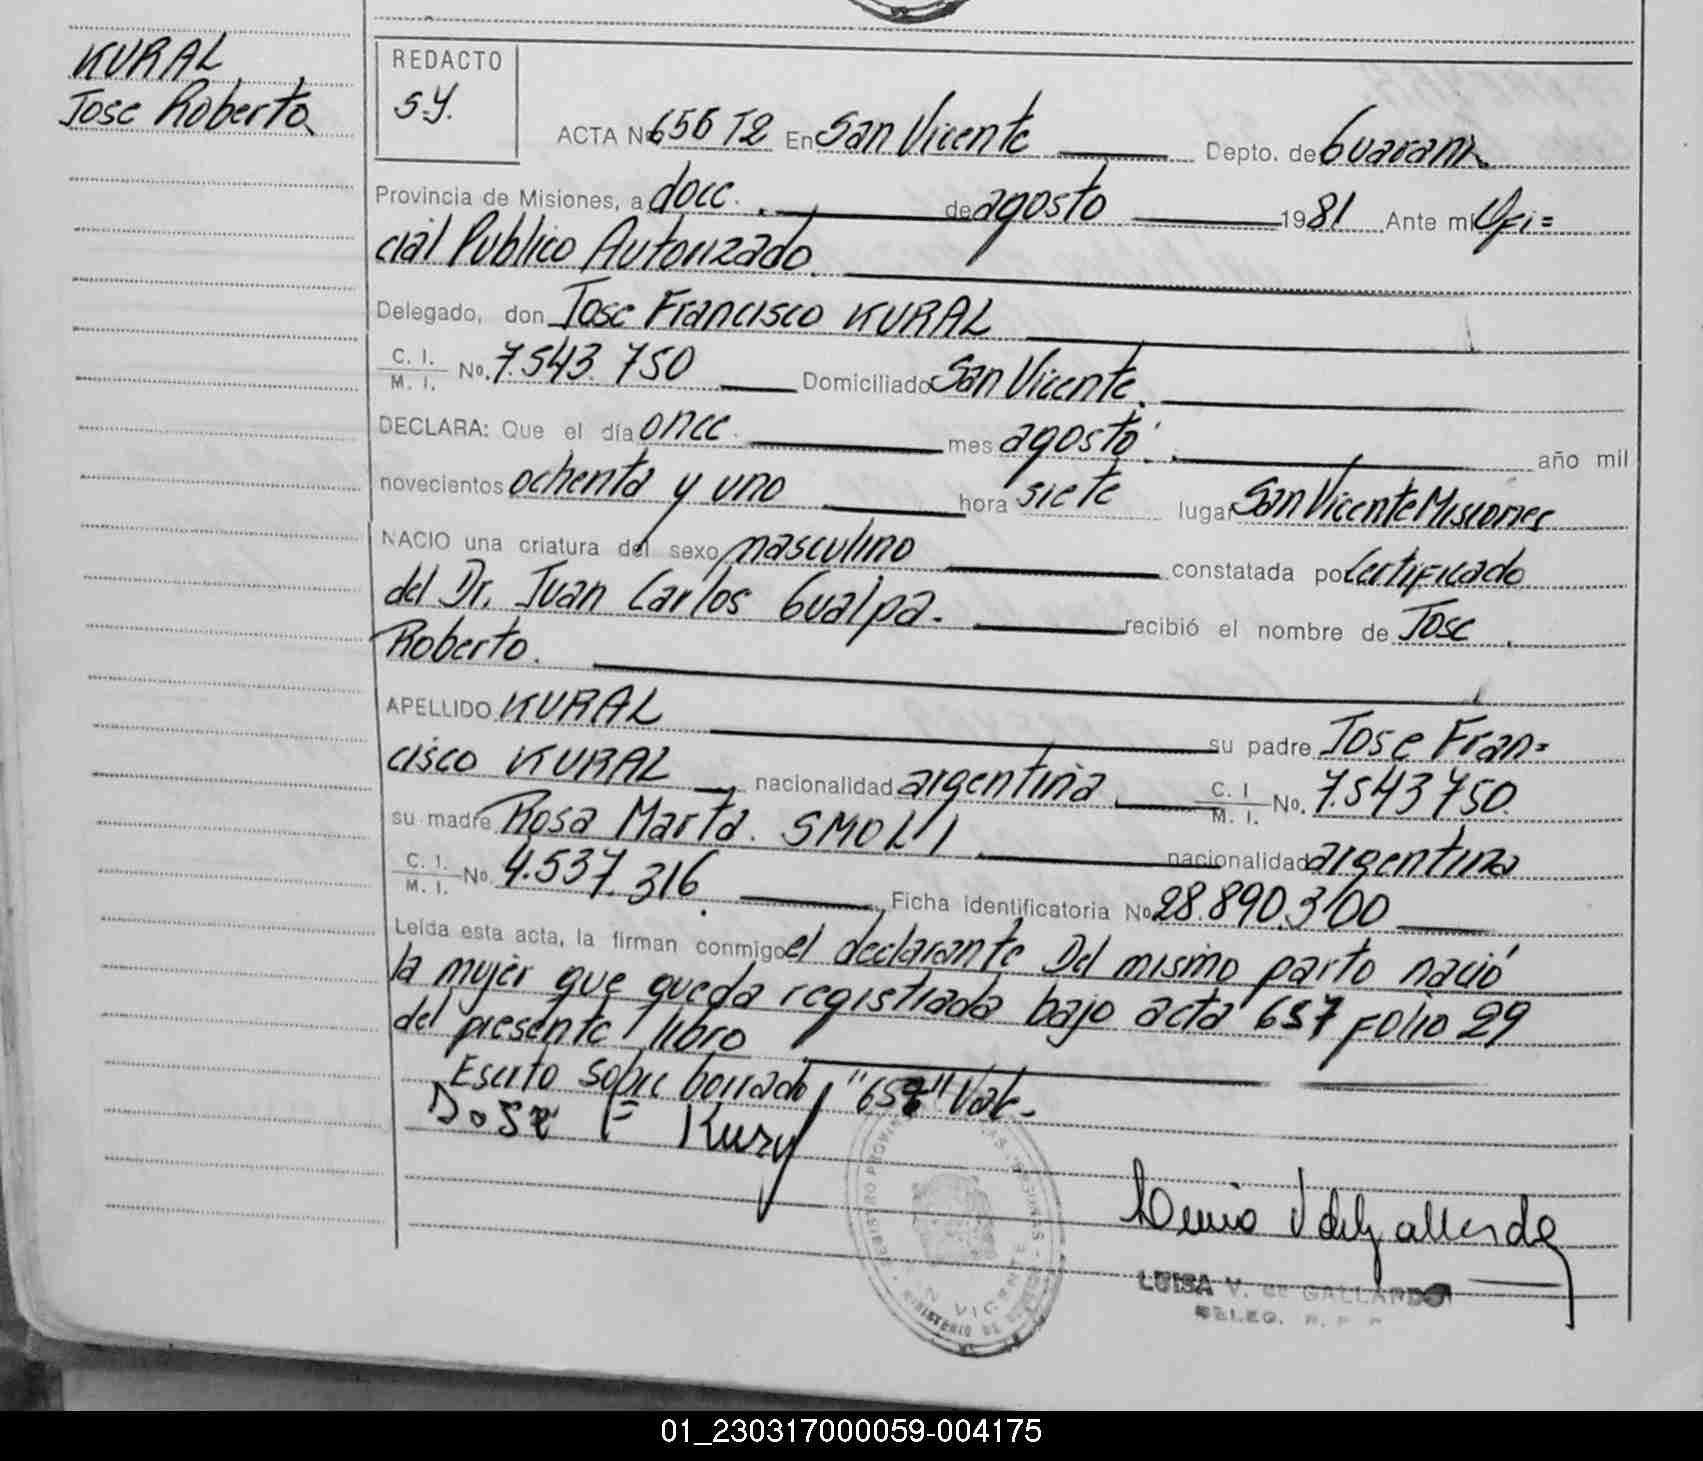 KURAL
Jose Roberto
REDACTO
S.Y.
ACTA Nº 656 T2 En San Vicente Depto. de Guarani
Provincia de Misiones, a doce. de agosto 1981 Ante mi Ofi=
cial Publico Autorizado.
Delegado, don Jose Francisco KURAL
C. I. / M. I. No. 7.543.750 Domiciliado San Vicente.
DECLARA: Que el día once. mes agosto. año mil
novecientos ochenta y uno hora siete lugar San Vicente Misiones
NACIO una criatura del sexo masculino constatada por Certificado
del Dr. Juan Carlos Gualpa. recibió el nombre de Jose
Roberto.
APELLIDO KURAL su padre Jose Fran=
cisco KURAL nacionalidad argentina C. I. / M. I. No. 7.543.750.
su madre Rosa Marta. SMOLI nacionalidad argentina
C. I. / M. I. No. 4.537.316. Ficha identificatoria No. 28.890.300
Leída esta acta, la firman conmigo el declarante Del mismo parto nació
la mujer que queda registrada bajo acta 657 Folio 29
del presente libro
Escrito sobre borrado "657" Vale.
Jose F Kural
SAN VICENTE
LUISA V. de GALLARDO
DELEG. R. P. P.
01_230317000059-004175